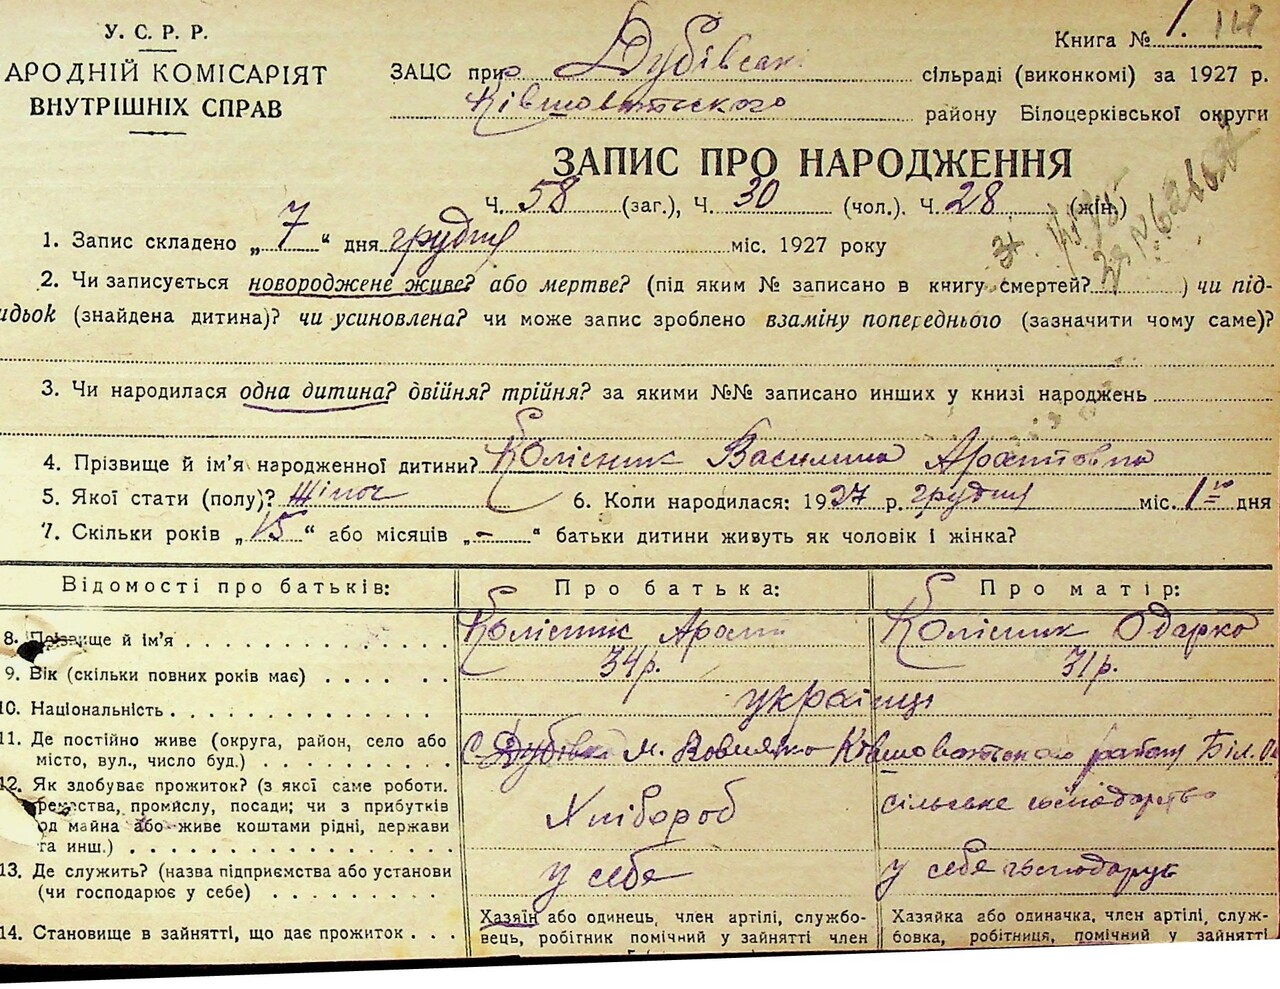 У. С. Р. Р.
АРОДНІЙ КОМІСАРІЯТ
ВНУТРІШНІХ СПРАВ
Книга № 1.
ЗАЦС при Дубівськ сільраді (виконкомі) за 1927 р.
Ківшоватського району Білоцерківської округи
ЗАПИС ПРО НАРОДЖЕННЯ
Ч. 58 (заг.), Ч. 30 (чол.). Ч. 28 (жін.)
1. Запис складено „ 7 “ дня грудня міс. 1927 року
2. Чи записується новороджене живе? або мертве? (під яким № записано в книгу смертей? ) чи під-
идьок (знайдена дитина)? чи усиновлена? чи може запис зроблено взаміну попереднього (зазначити чому саме)?
3. Чи народилася одна дитина? двійня? трійня? за якими №№ записано инших у книзі народжень
4. Прізвище й ім’я народженної дитини? Колісник Василина
5. Якої стати (полу)? жіноч 6. Коли народилася: 1927 р. грудня міс. 1го дня
7. Скільки років „ 15 “ або місяців „ - “ батьки дитини живуть як чоловік і жінка?
Відомості про батьків: Про батька: Про матір:
8. Прізвище й ім’я Колісник Колісник Одарка
9. Вік (скільки повних років має) 34 р. 31 р.
10. Національність українці
11. Де постійно живе (округа, район, село або
місто, вул., число буд.) с. Дубівка Ківшоватського району Біл.
12. Як здобуває прожиток? (з якої саме роботи.
ремества, промислу, посади; чи з прибутків
од майна або живе коштами рідні, держави
та инш.) Хлібороб сільське господарство
13. Де служить? (назва підприємства або установи
(чи господарює у себе) у себе у себе господарує
14. Становище в зайнятті, що дає прожиток
Хазяїн або одинець, член артілі, службо-
вець, робітник помічний у зайнятті член
Хазяйка або одиначка, член артілі, служ-
бовка, робітниця, помічний у зайнятті